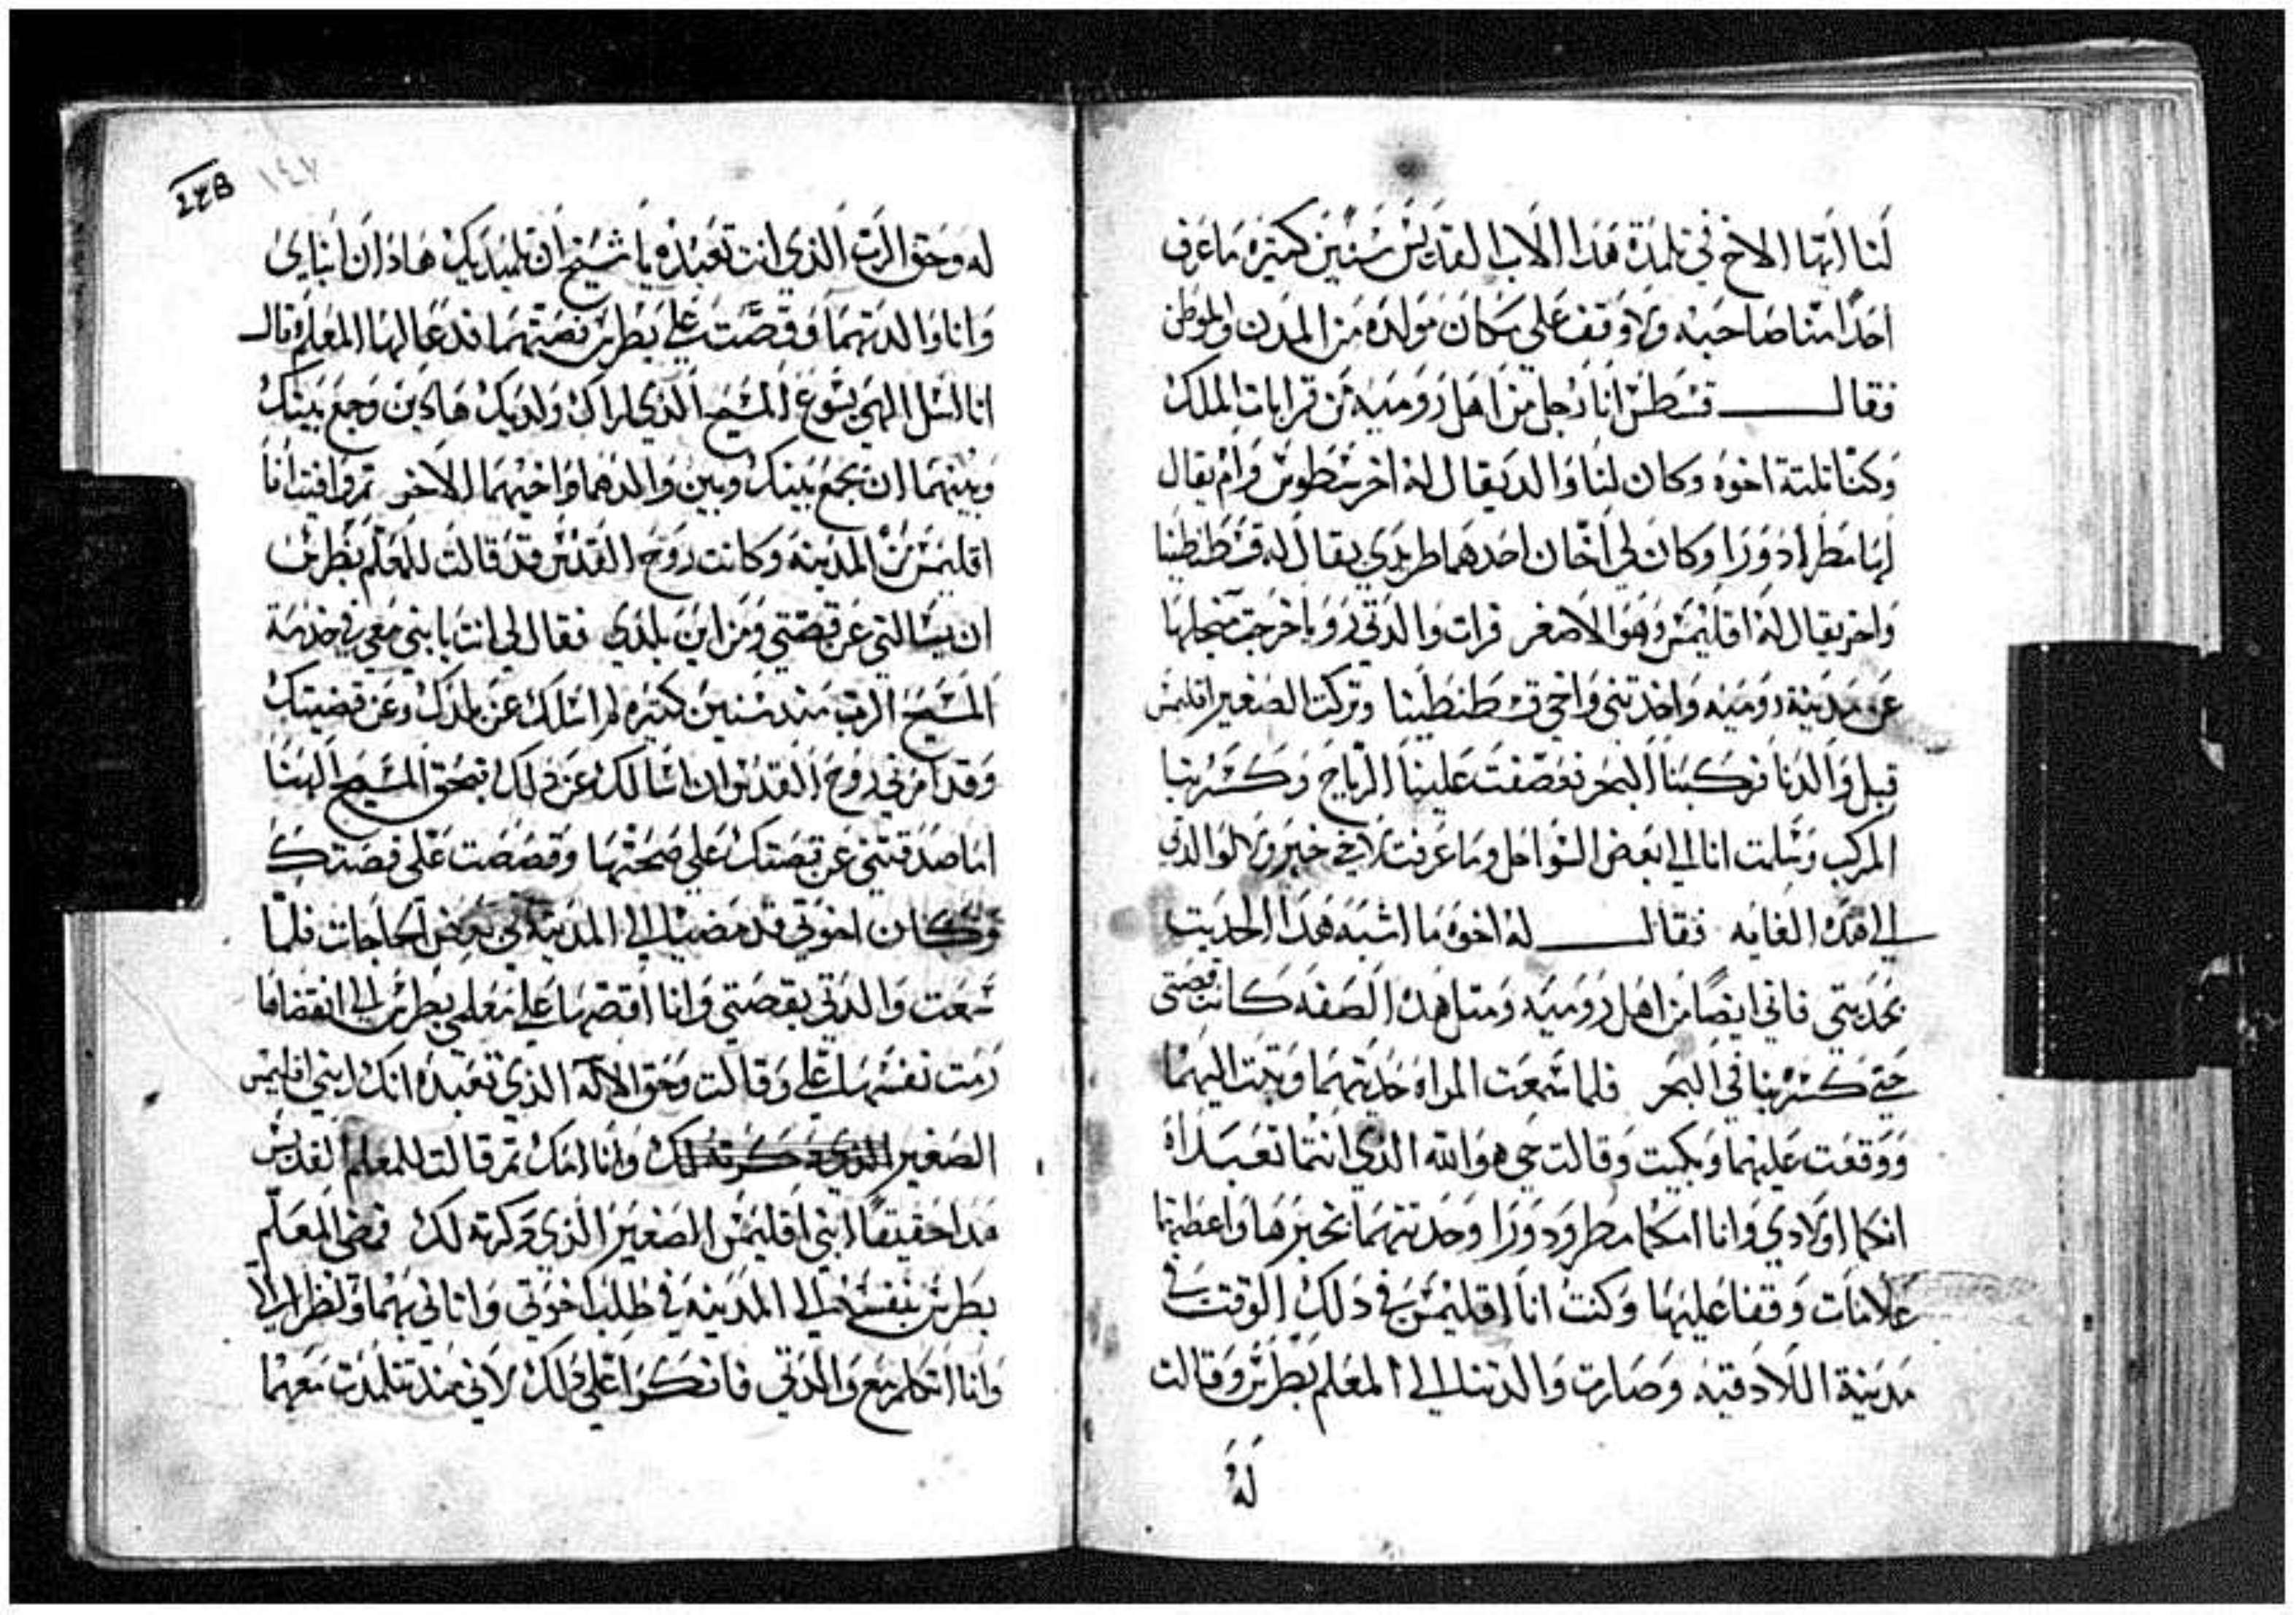 لنا ايها الاخ في تلمذة هدا الاب القديس سنين كتيره ما عرف
احدا منا صاحبه ولا وقف على مكان مولده من المدن والموطن
فقال قسطس انا رجل من اهل روميه من قرابات الملك
وكنا تلتة اخوه وكان لنا والد يقال له اخرسطوس وام يقال
لها مطرادورا وكان لي اخان احدهما طريدي يقال له قسطنطينا
واخر يقال له اقليمس وهو الاصغر فرات والدتي رويا خرجت منجلها
عن مدينة روميه واخدتني واخي قسطنطينا وتركت الصغير اقليمس
قبل والدنا فركبنا البحر فعصفت علينا الرياح وكسر بنا
المركب وسلمت انا الى بعض السواحل وما عرفت لاخي خبر ولا لوالدتي
الى هده الغايه فقال له اخوه ما اشبه هدا الحديت
بحديتي فاني ايضا من اهل روميه ومتل هده الصفه كانت قصتي
حتى كسر بنا في البحر فلما سمعت المراه حديتهما وتبت اليهما
ووقعت عليهما وبكيت وقالت حي هو الله الذي انتما تعبداه
انكما اولادي وانا امكما مطرودورا وحدتتهما بخبرها واعطتهما
علامات وقفا عليها وكنت انا اقليمس في دلك الوقت في
مدينة اللادقيه وصارت والدتنا الى المعلم بطرس وقالت
له
٢٣٨ ١٤٧
له وحق الرب الذي انت تعبده يا شيخ ان تلميديك هادان ابناي
وانا والدتهما وقصت على بطرس قصتهما فدعا لها المعلم وقال
انا اسل الهي يسوع المسيح الذي اراك ولديك هادين وجمع بينك
وبينهما ان يجمع بينك وبين والدهما واخيهما الاخر تم وافيت انا
اقليمس من المدينه وكانت روح القدس قد قالت للمعلم بطرس
ان يسالني عن قصتي ومن اين بلدي فقال لي انت يا بني معي في خدمة
المسيح الرب مند سنين كتيره لم اسلك عن بلدك وعن قضيتك
وقد امرني روح القدس ان اسالك عن دلك فبحق المسيح الهنا
اما صدقتني عن قصتك على صحتها وقصصت على قصتك
وكان اخوتي قد مضيا الى المدينة في بعض الحاجات فلما
سمعت والدتي بقصتي وانا اقصها على معلمي بطرس الى انقضاها
رمت نفسها على وقالت وحق الاله الذي تعبده انك ابني اقليمس
الصغير الذي دكرته لك وانا امك تم قالت للمعلم القديس
هدا حقيقا ابني اقليمس الصغير الذي دكرته لك فمضى المعلم
بطرس بنفسه الى المدينه في طلب اخوتي واتاني بهما ونظرا الي
وانا اتكلم مع والدتي فانكروا علي دلك لاني مند تتلمدت معهما